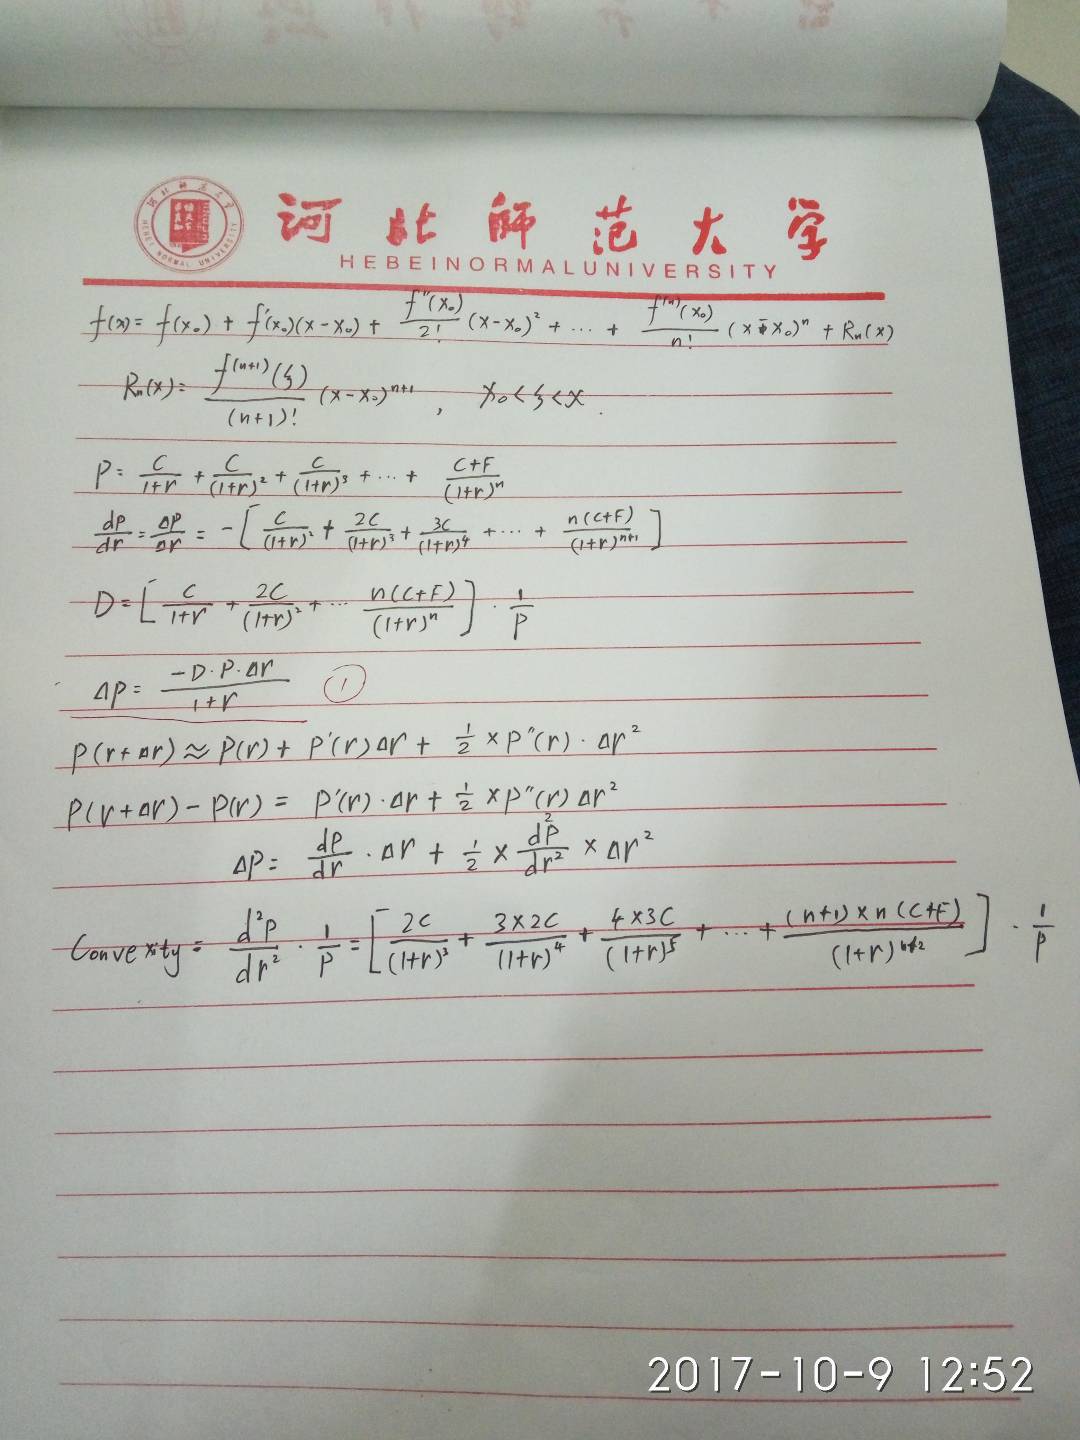 河北師范大学
HEBEI NORMAL UNIVERSITY
f(x) = f(x₀) + f'(x₀)(x-x₀) + f''(x₀)/2! (x-x₀)² + ··· + f⁽ⁿ⁾(x₀)/n! (x-x₀)ⁿ + Rₙ(x)
Rₙ(x) = f⁽ⁿ⁺¹⁾(ξ)/(n+1)! (x-x₀)ⁿ⁺¹ , x₀<ξ<x .
P = C/(1+r) + C/(1+r)² + C/(1+r)³ + ··· + (C+F)/(1+r)ⁿ
dP/dr = ΔP/Δr = -[ C/(1+r)² + 2C/(1+r)³ + 3C/(1+r)⁴ + ··· + n(C+F)/(1+r)ⁿ⁺¹ ]
D = [ C/(1+r) + 2C/(1+r)² + ··· n(C+F)/(1+r)ⁿ ] · 1/P
ΔP = -D·P·Δr/(1+r) ①
P(r+Δr) ≈ P(r) + P'(r)Δr + 1/2 × P''(r) · Δr²
P(r+Δr) - P(r) = P'(r)·Δr + 1/2 × P''(r) Δr²
ΔP = dP/dr · Δr + 1/2 × d²P/dr² × Δr²
Convexity = d²P/dr² · 1/P = [ 2C/(1+r)³ + 3×2C/(1+r)⁴ + 4×3C/(1+r)⁵ + ··· + (n+1)×n(C+F)/(1+r)ⁿ⁺² ] · 1/P
2017-10-9 12:52